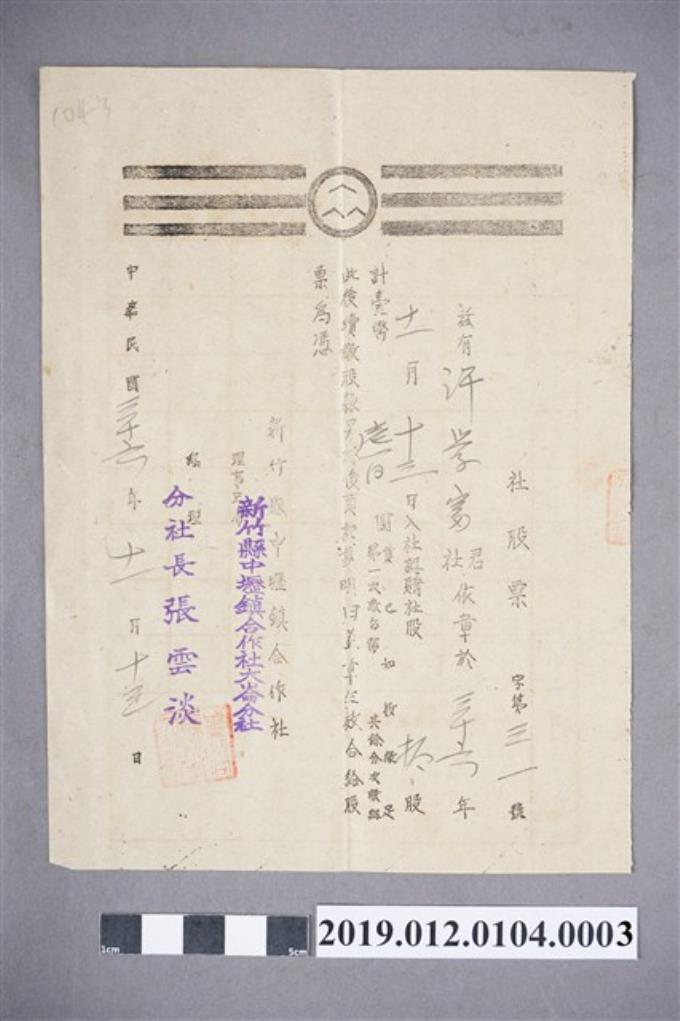 104-3
社股票 字第三一號
茲有許学富君社依章於三十六年
十一月十三日入社認購社股拾股
計臺幣壹百圓
業已如收繳足
第一次取台幣 其餘分次繳納
此後續繳股款 後頁 明日 章 合給股
票為憑
新竹縣中壢鎮合作社
新竹縣中壢鎮合作社大崙分社
理事主席
經理
分社長張雲淡
中華民國三十六年十一月十三日
1cm 5cm
2019.012.0104.0003